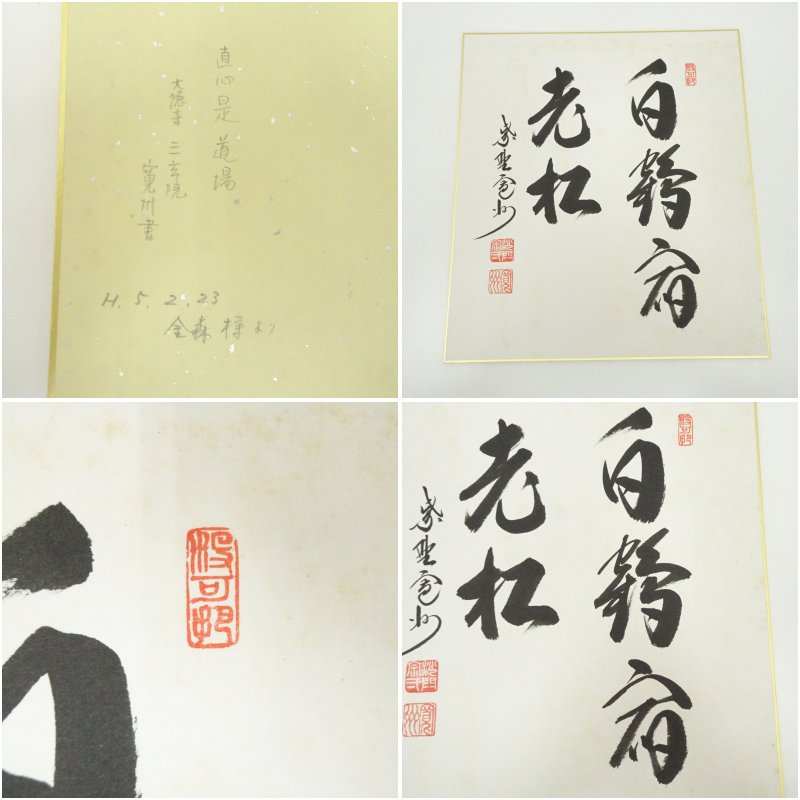 直心是道場
大徳寺 三玄院
寛州書
H. 5. 2. 23
金森様より
白鶴宿
老松
紫野寛州
没可把
白鶴宿
老松
紫野寛州